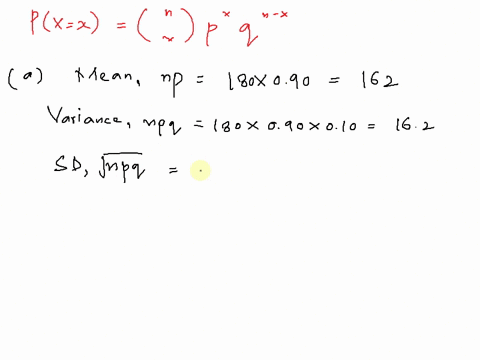 P(X=x) = (n x) p^x q^{n-x}
(a) Mean, np = 180 × 0.90 = 162
Variance, npq = 180 × 0.90 × 0.10 = 16.2
SD, √npq =